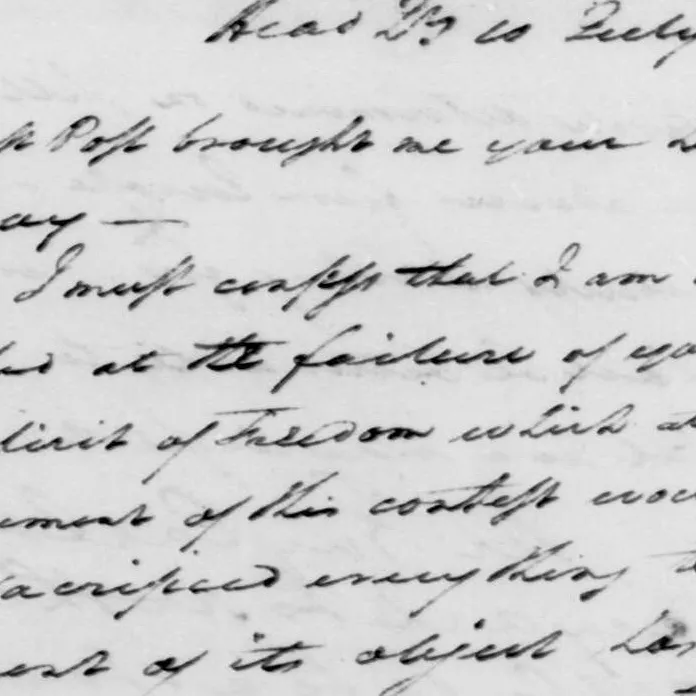 Head Qrs 10 July
st Post brought me your
ay —
I must confess that I am
ed at the failure of yo
pirit of Freedom which at
ement of this contest wou
sacrificed every thing
ent of its object has